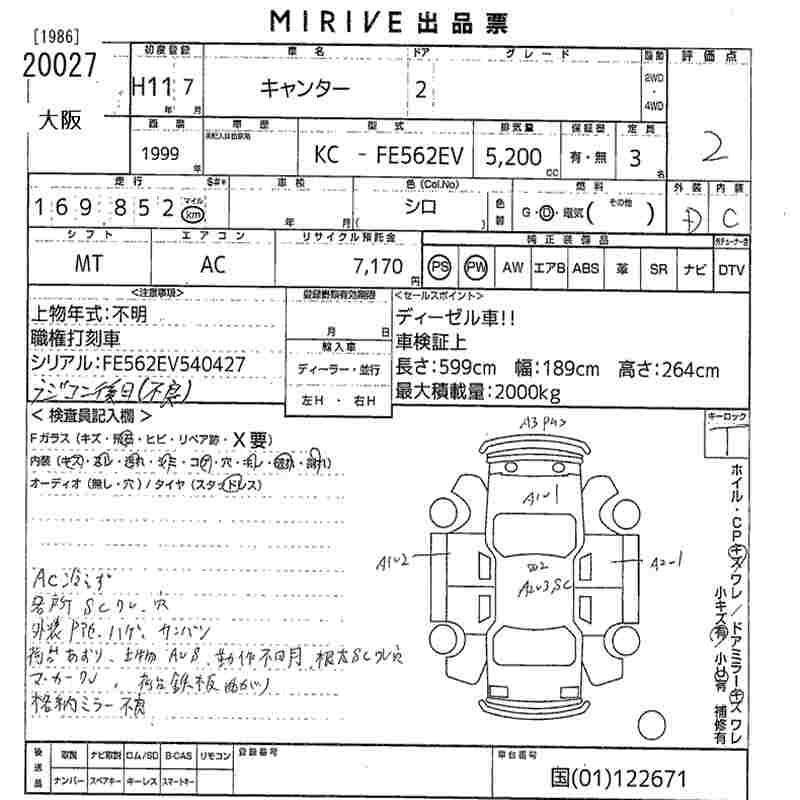 MIRIVE 出品票
[1986]
20027
大阪
初度登録 車名 ドア グレード 駆動 評価点
H11 7 キャンター 2 2WD・4WD
年 月
西暦 車歴 型式 排気量 保証書 定員
1999 年 KC - FE562EV 5,200 cc 有・無 3 名 2
走行 S#* 車検 色(Col.No) 燃料 外装 内装
169,852 マイル km 年 月 シロ ( ) 色替 G・D・電気( その他 ) D C
シフト エアコン リサイクル預託金 純正装備品
MT AC 7,170 円 PS PW AW エアB ABS 革 SR ナビ DTV
<注意事項> 登録書類有効期限 <セールスポイント>
上物年式:不明 月 日 ディーゼル車!!
職権打刻車 輸入車 車検証上
シリアル:FE562EV540427 ディーラー・並行 長さ:599cm 幅:189cm 高さ:264cm
ラジコン後日(不良) 左H ・ 右H 最大積載量:2000kg
<検査員記入欄> キーロック
Fガラス(キズ・飛石・ヒビ・リペア跡・X要) T
内装(キズ・・シミ・コゲ・穴・
オーディオ(無し・穴)/タイヤ(スタッドレス)
A1〜1
A1〜2 A2〜1
A2〜3,SC
AC冷えず
各所SCワレ、穴
外装P他、ハゲ、カンバン
荷台あおり、上物AUS、動作不明、
マーカーワレ、荷台鉄板曲がり
格納ミラー不良
ホイル・CPキズワレ/ドアミラーキズワレ
小キズ有 小凹有 補修有
後送品 取説 ナビ取説 ロム/SD B-CAS リモコン 登録番号 車台番号
ナンバー スペアキー キーレス スマートキー 国(01)122671